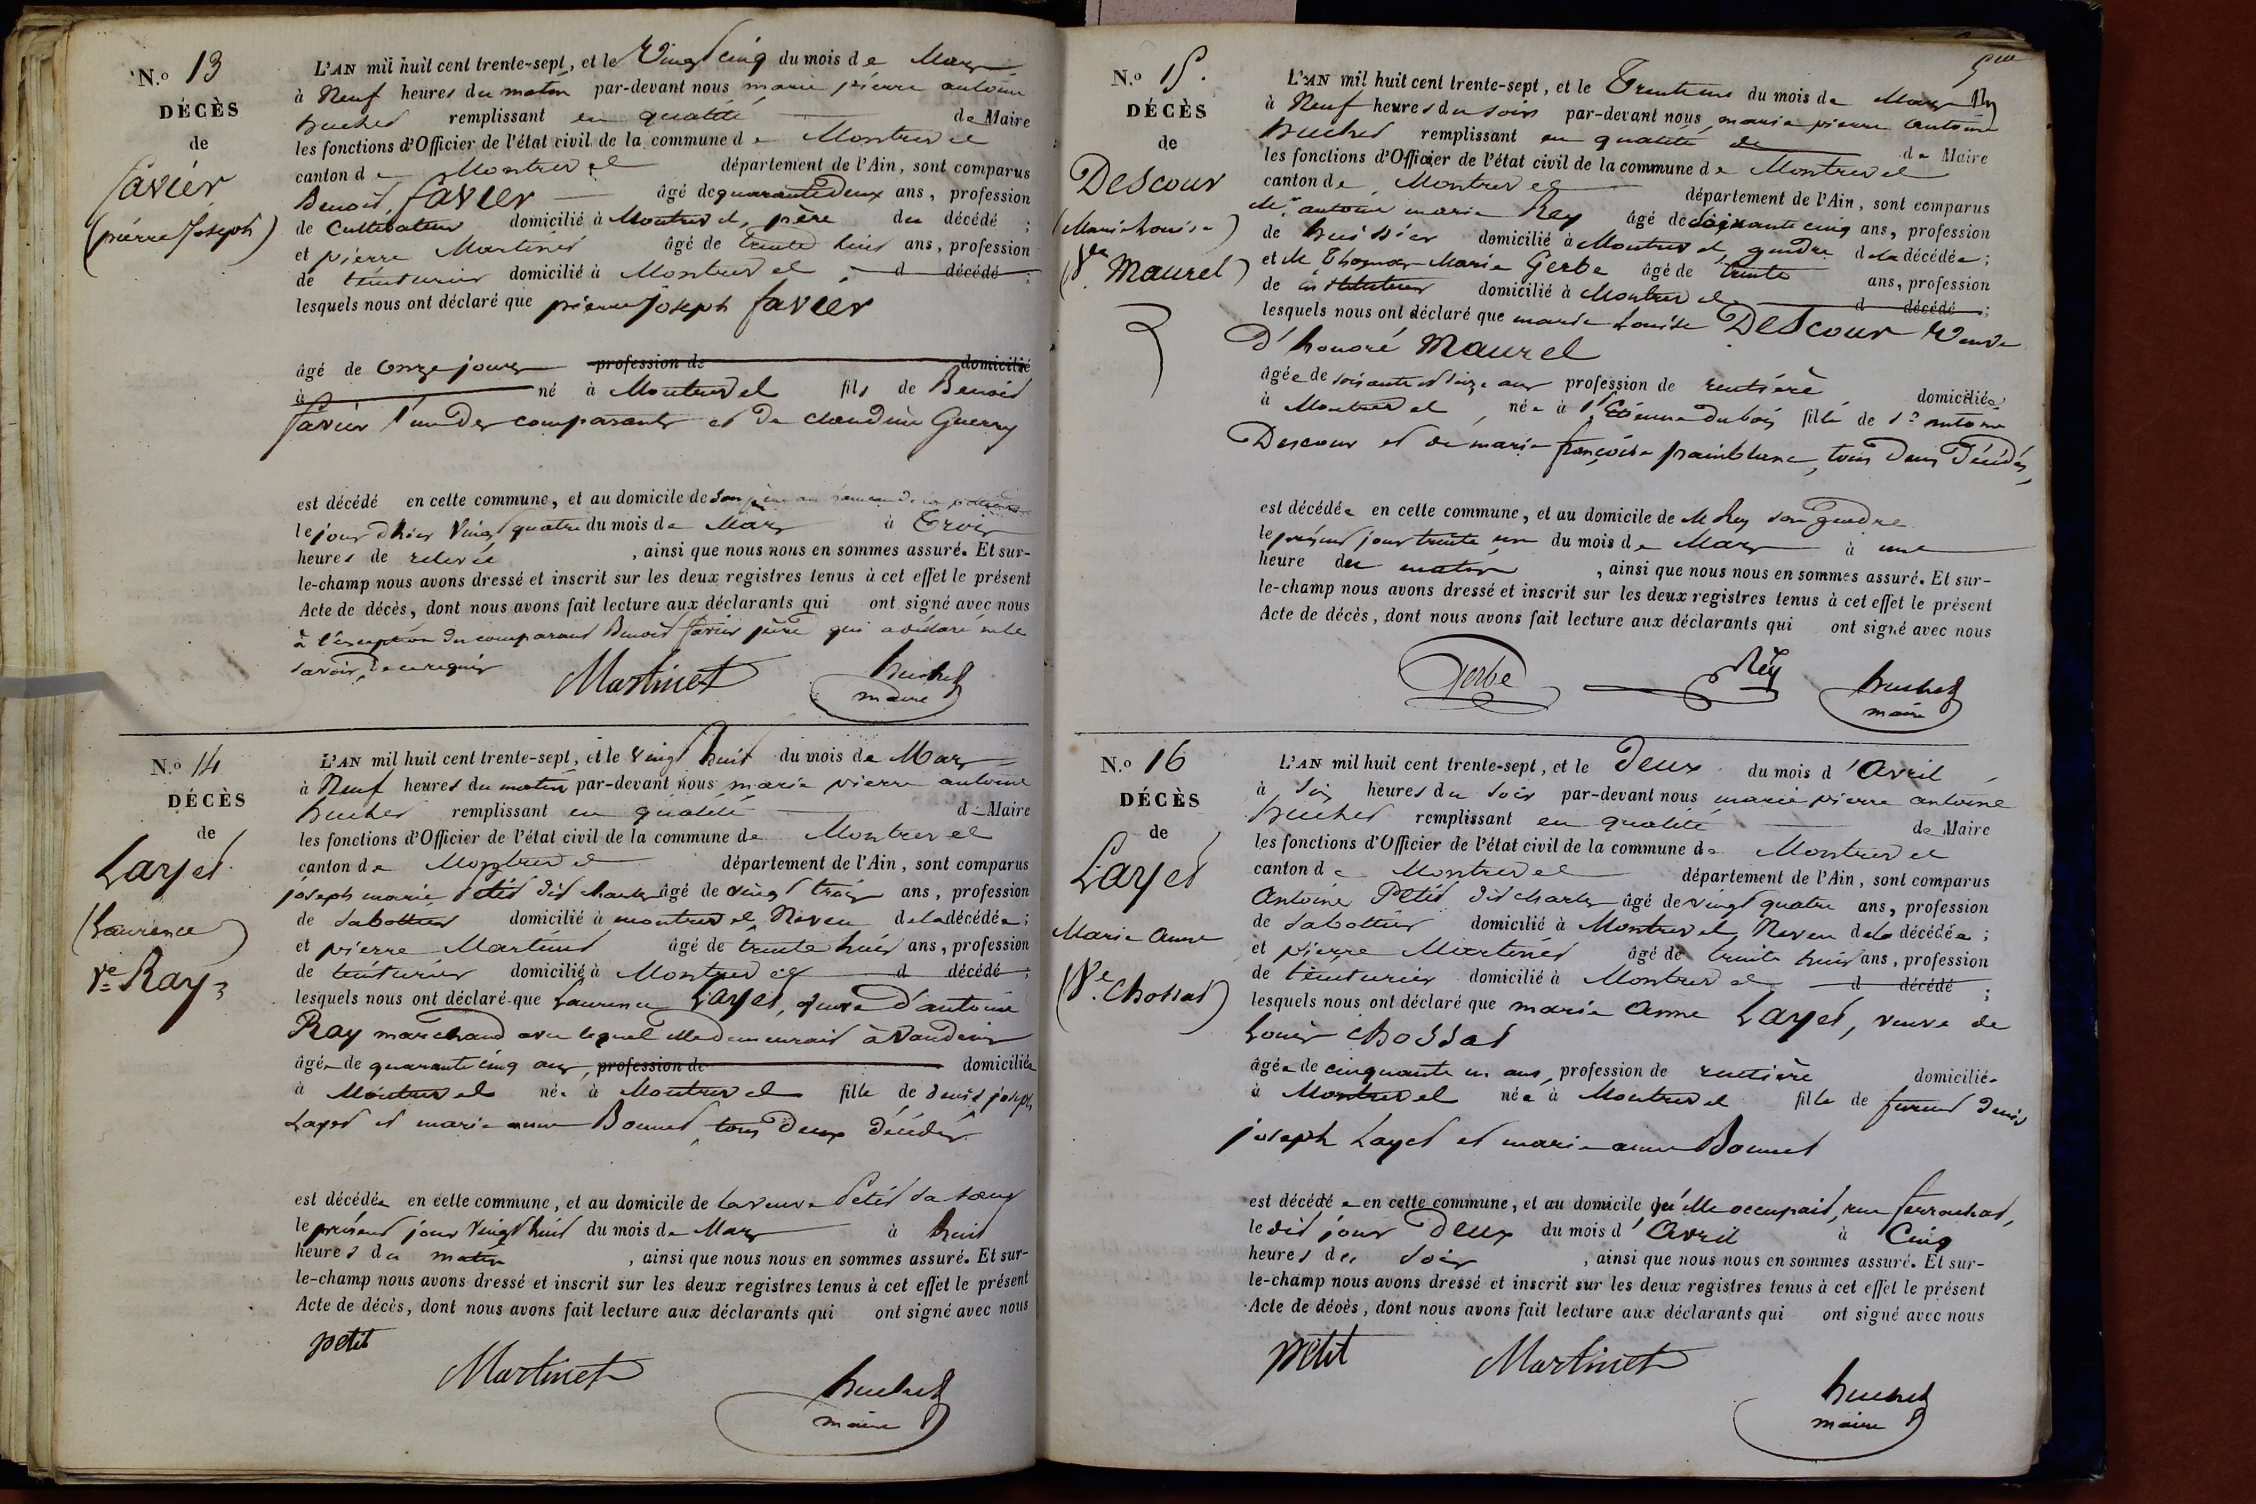 N.º 13
DÉCÈS
de
favier
(pierre Joseph)
L'AN mil huit cent trente-sept, et le Vingt cinq du mois de Mars
à Neuf heures du matin par-devant nous marie pierre antoine
huchet remplissant en qualité de Maire
les fonctions d'Officier de l'état civil de la commune de Montrevel
canton de Montrevel département de l'Ain, sont comparus
Benoit favier âgé de quarante deux ans, profession
de Cultivateur domicilié à Montrevel, père du décédé ;
et pierre Martinet âgé de trente huit ans, profession
de teinturier domicilié à Montrevel d décédé ;
lesquels nous ont déclaré que pierre joseph favier
âgé de onze jours profession de domicilié
à né à Montrevel fils de Benoit
favier l'un des comparants et de claudine Guerry
est décédé en cette commune, et au domicile de son père au hameau de la
le jour d'hier Vingt quatre du mois de Mars à Trois
heures de relevée , ainsi que nous nous en sommes assuré. Et sur-
le-champ nous avons dressé et inscrit sur les deux registres tenus à cet effet le présent
Acte de décès, dont nous avons fait lecture aux déclarants qui ont signé avec nous
à l'exception du comparant Benoit favier père qui a déclaré ne le
savoir, de ce requis
Martinet huchet
maire
N.º 14
DÉCÈS
de
Layet
(Laurence)
Ve Ray
L'AN mil huit cent trente-sept, et le vingt huit du mois de Mars
à Neuf heures du matin par-devant nous marie pierre antoine
huchet remplissant en qualité de Maire
les fonctions d'Officier de l'état civil de la commune de Montrevel
canton de Montrevel département de l'Ain, sont comparus
joseph marie Petit dit charles âgé de vingt trois ans, profession
de sabottier domicilié à montrevel, Neveu de la décédée ;
et pierre Martinet âgé de trente huit ans, profession
de teinturier domicilié à Montrevel d décédé ;
lesquels nous ont déclaré que Laurence Layet, épouse d'antoine
Ray marchand avec lequel elle demeurait à
âgée de quarante cinq ans, profession de domiciliée
à Montrevel née à Montrevel fille de denis joseph
Layet et marie anne Bonnet, tous Deux décédés
est décédée en cette commune, et au domicile de la veuve Petit sa soeur
le présent jour Vingt huit du mois de Mars à huit
heures du matin , ainsi que nous nous en sommes assuré. Et sur-
le-champ nous avons dressé et inscrit sur les deux registres tenus à cet effet le présent
Acte de décès, dont nous avons fait lecture aux déclarants qui ont signé avec nous
petit
Martinet
huchet
maire
N.º 15.
DÉCÈS
de
Descour
(Marie Louise)
(Ve Maurel)
L'AN mil huit cent trente-sept, et le Trente un du mois de Mars
à Neuf heures du soir par-devant nous marie pierre antoine
huchet remplissant en qualité de de Maire
les fonctions d'Officier de l'état civil de la commune de Montrevel
canton de Montrevel département de l'Ain, sont comparus
Mr antoine marie Rey âgé de soixante cinq ans, profession
de huissier domicilié à Montrevel, gendre de la décédée ;
et M Thomas Marie Gerbe âgé de trente ans, profession
de instituteur domicilié à Montrevel d décédé ;
lesquels nous ont déclaré que marie Louise Descour Veuve
D'honoré Maurel
âgée de soixante et seize ans profession de rentière domiciliée
à Montrevel, née à St Etienne du bois fille de Sr antoine
Descour et de marie françoise painblanc, tous Deux Décédés,
est décédée en cette commune, et au domicile de M Rey son gendre
le présent jour trente un du mois de Mars à une
heure du matin , ainsi que nous nous en sommes assuré. Et sur-
le-champ nous avons dressé et inscrit sur les deux registres tenus à cet effet le présent
Acte de décès, dont nous avons fait lecture aux déclarants qui ont signé avec nous
Gerbe Rey huchet
maire
N.º 16
DÉCÈS
de
Layet
Marie Anne
(Ve Chossat)
L'AN mil huit cent trente-sept, et le Deux du mois d'Avril
à Six heures du soir par-devant nous marie pierre antoine
huchet remplissant en qualité de Maire
les fonctions d'Officier de l'état civil de la commune de Montrevel
canton de Montrevel département de l'Ain, sont comparus
Antoine Petit dit charles âgé de vingt quatre ans, profession
de sabottier domicilié à Montrevel, Neveu de la décédée ;
et pierre Martinet âgé de trente huit ans, profession
de teinturier domicilié à Montrevel d décédé ;
lesquels nous ont déclaré que marie anne Layet, veuve de
Louis Chossat
âgée de cinquante un ans, profession de rentière domiciliée
à Montrevel née à Montrevel fille de furent denis
joseph Layet et marie anne Bonnet
est décédée en cette commune, et au domicile qu'elle occupait, rue ferrachat,
le dit jour Deux du mois d'Avril à Cinq
heures du soir , ainsi que nous nous en sommes assuré. Et sur-
le-champ nous avons dressé et inscrit sur les deux registres tenus à cet effet le présent
Acte de décès, dont nous avons fait lecture aux déclarants qui ont signé avec nous
petit Martinet
huchet
maire